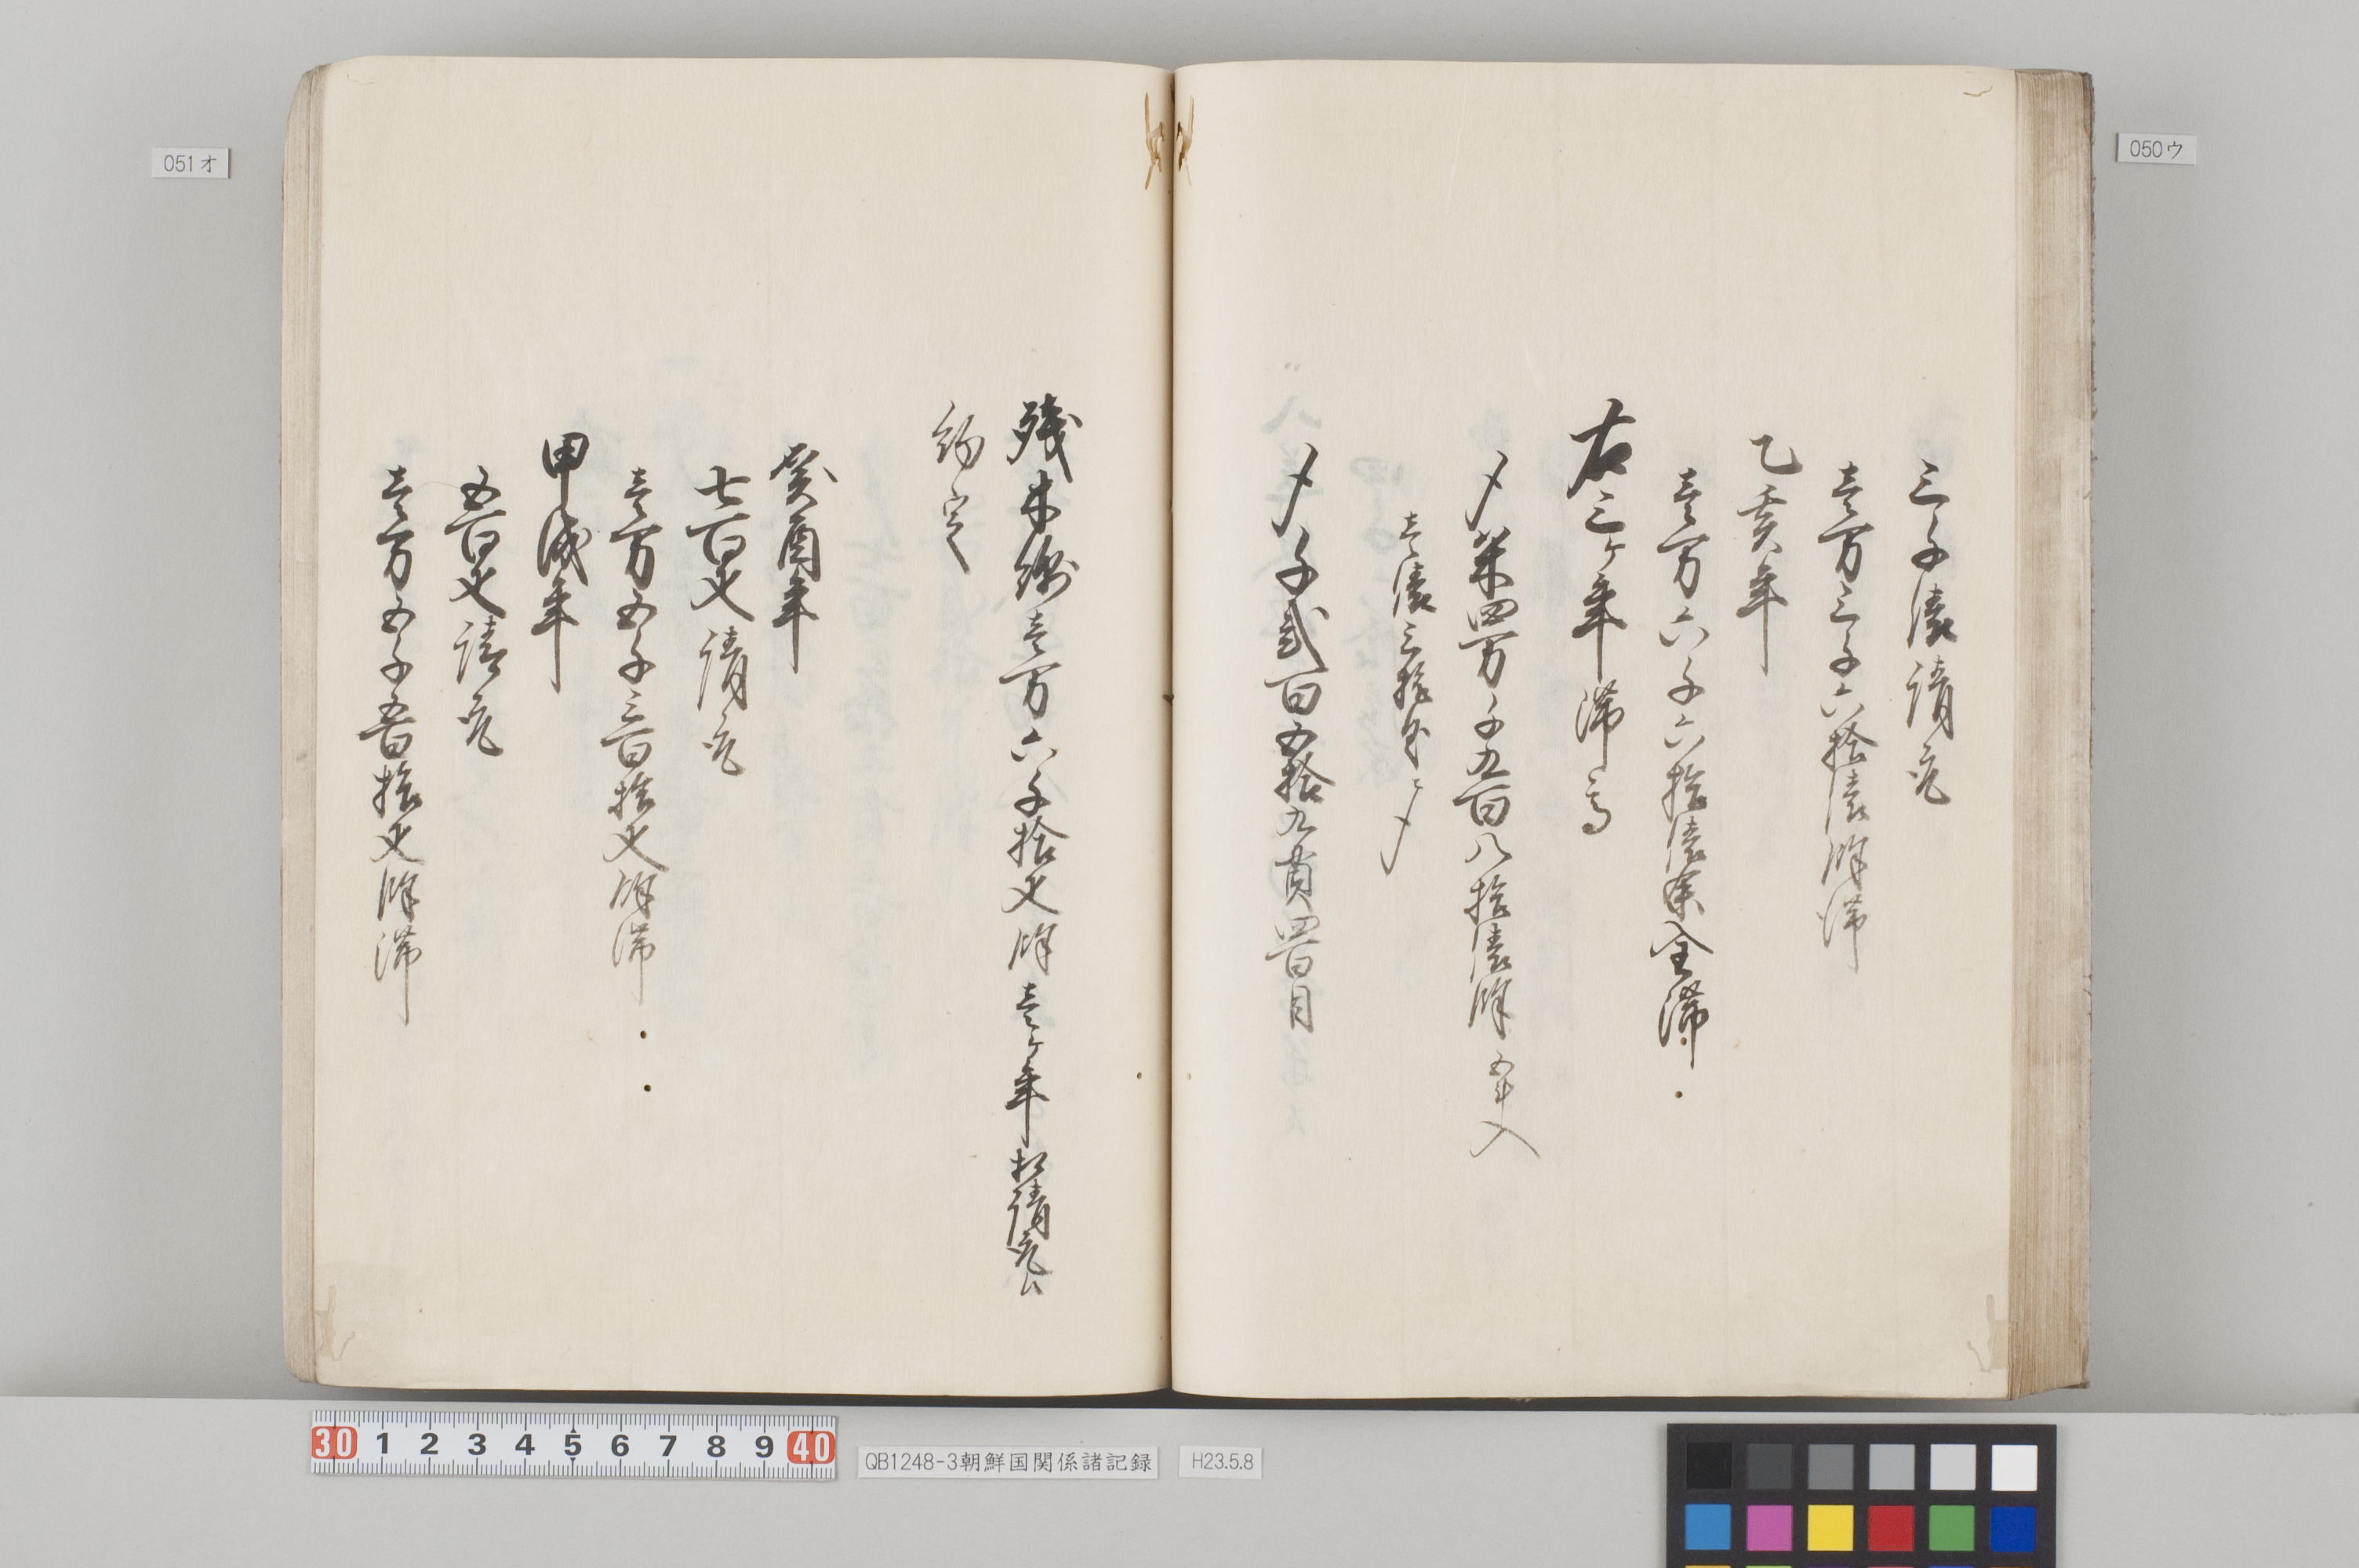 三千俵請取
壱万三千六拾俵餘滞
乙亥年
壱万六千六拾俵余全滞
右三ヶ年滞高
〆米四万千九百八拾俵餘 五斗入
壱俵三拾匁〆
〆千弐百五拾九貫四百目
残木綿壱万六千拾疋餘壱ヶ年相請取候
約定
癸酉年
七百疋請取
壱万五千三百拾疋餘滞
甲戌年
五百疋請取
壱万五千五百拾疋餘滞
051オ
050ウ
30 1 2 3 4 5 6 7 8 9 40
QB1248-3朝鮮国関係諸記録
H23.5.8